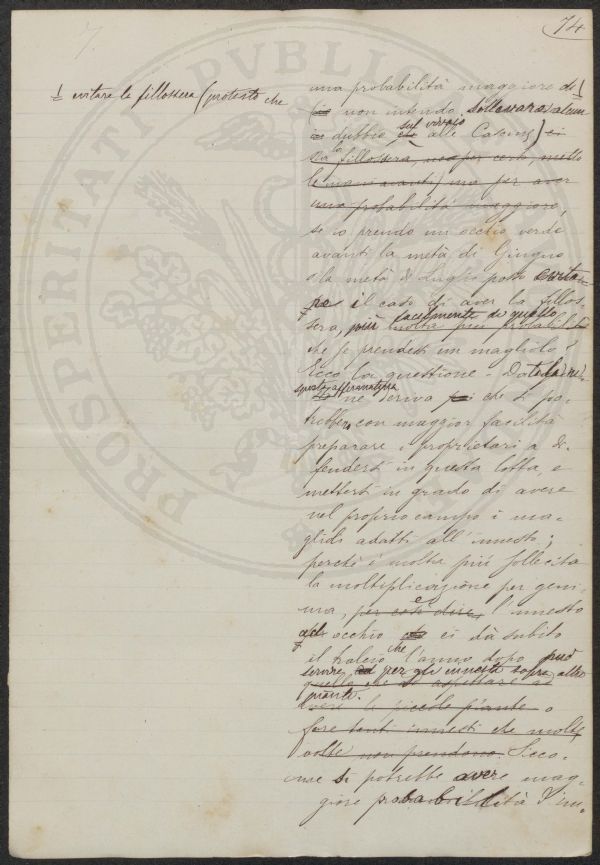 74
1 evitare la fillossera (protesto che
una probabilità maggiore di 1
non intendo sollevare alcun
dubbio sul vivaio alle Cascine) ci
sia la fillossera, non per certo, metto
le mani avanti) ma per aver
una probabilità maggiore,
se io prendo un occhio verde
avanti la metà di Giugno
o la metà di Luglio posso evita-
re il caso di aver la fillos-
sera, più facilmente di quello
molta più probabil
che se prendessi un magliolo?
Ecco la questione. Data la ri-
sposta affermativa
ne deriva che si po-
trebbe, con maggior facilità
preparare i proprietari a di-
fendersi in questa lotta, e
mettersi in grado di avere
nel proprio campo i ma-
glioli adatti all'innesto;
perchè è molto più sollecita
la moltiplicazione per gem-
ma, per così dire, e l'innesto
ad occhio ci dà subito
il tralcio che l'anno dopo può
servire per gli innesti sopra altre
quello che
piante.
le piccole piante o
fare tanti innesti che molte
volte non prendono. Sicco-
me si potrebbe avere mag-
giore probabilità d'im-
PVBLICAE
PROSPERITATI